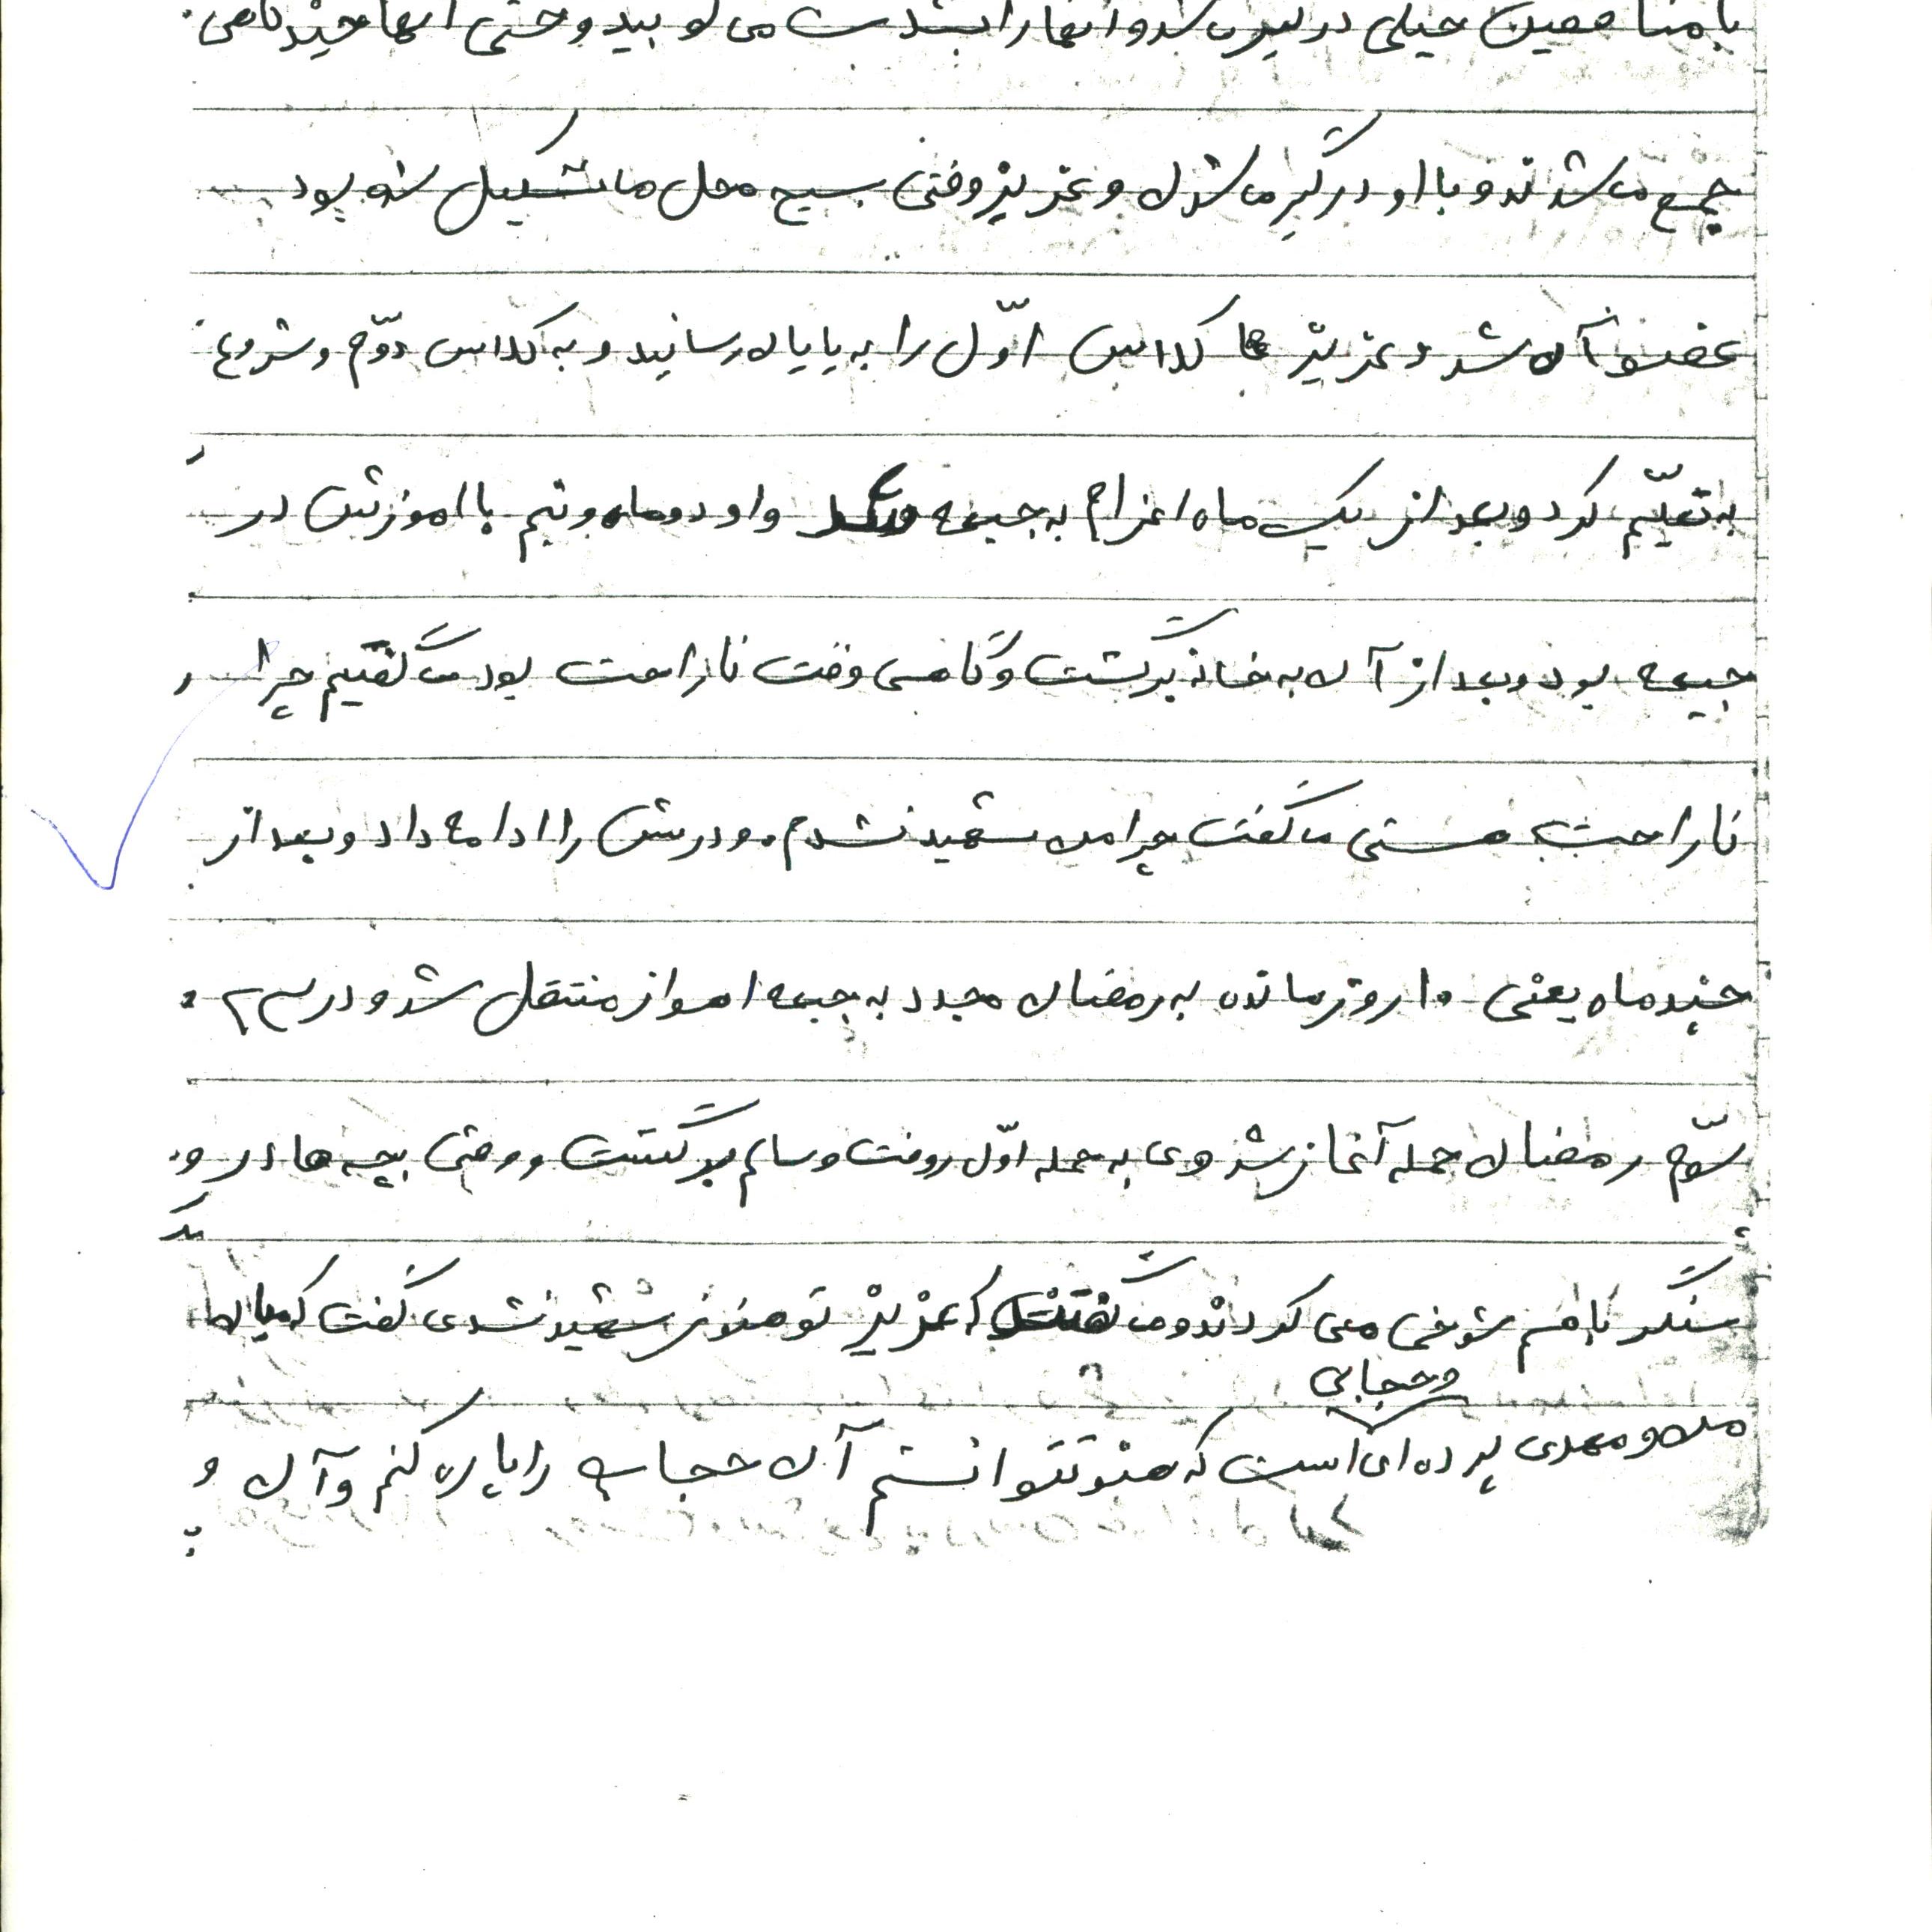 با منافقین خیلی درگیر می شد و آنها را بشدت می کوبید و حتی آنها چند تاهی
جمع می شدند و با او درگیر می شدن و عزیز وقتی بسیج محل ما تشکیل شده بود
عضو آن شد و عزیز ما کلاس اوّل را به پایان رسانید و به کلاس دوّم و شروع
به تعلیّم کرد و بعد از یک ماه اعزام به جبهه شد و او دو ماه و نیم با اموزش در
جبهه بود و بعد از آن به خانه برگشت و گاهی وقت ناراحت بود می گفتیم چرا
ناراحت هستی می گفت چرا من شهید نشدم. و درسش را ادامه داد و بعد از
چند ماه یعنی ۱۰ روز مانده به رمضان مجدد به جبهه اهواز منتقل شد و در
سوّم رمضان حمله آغاز شد وی به حمله اوّل رفت و سالم برگشت و وقتی بچه ها در
سنگر باهم شوخی می کردند و می گفتند که عزیز تو هنوز شهید نشدی گفت که میان
و حجابی
من و مهدی پرده ای است که هنو نتوانستم آن حجاب را پاره کنم و آن